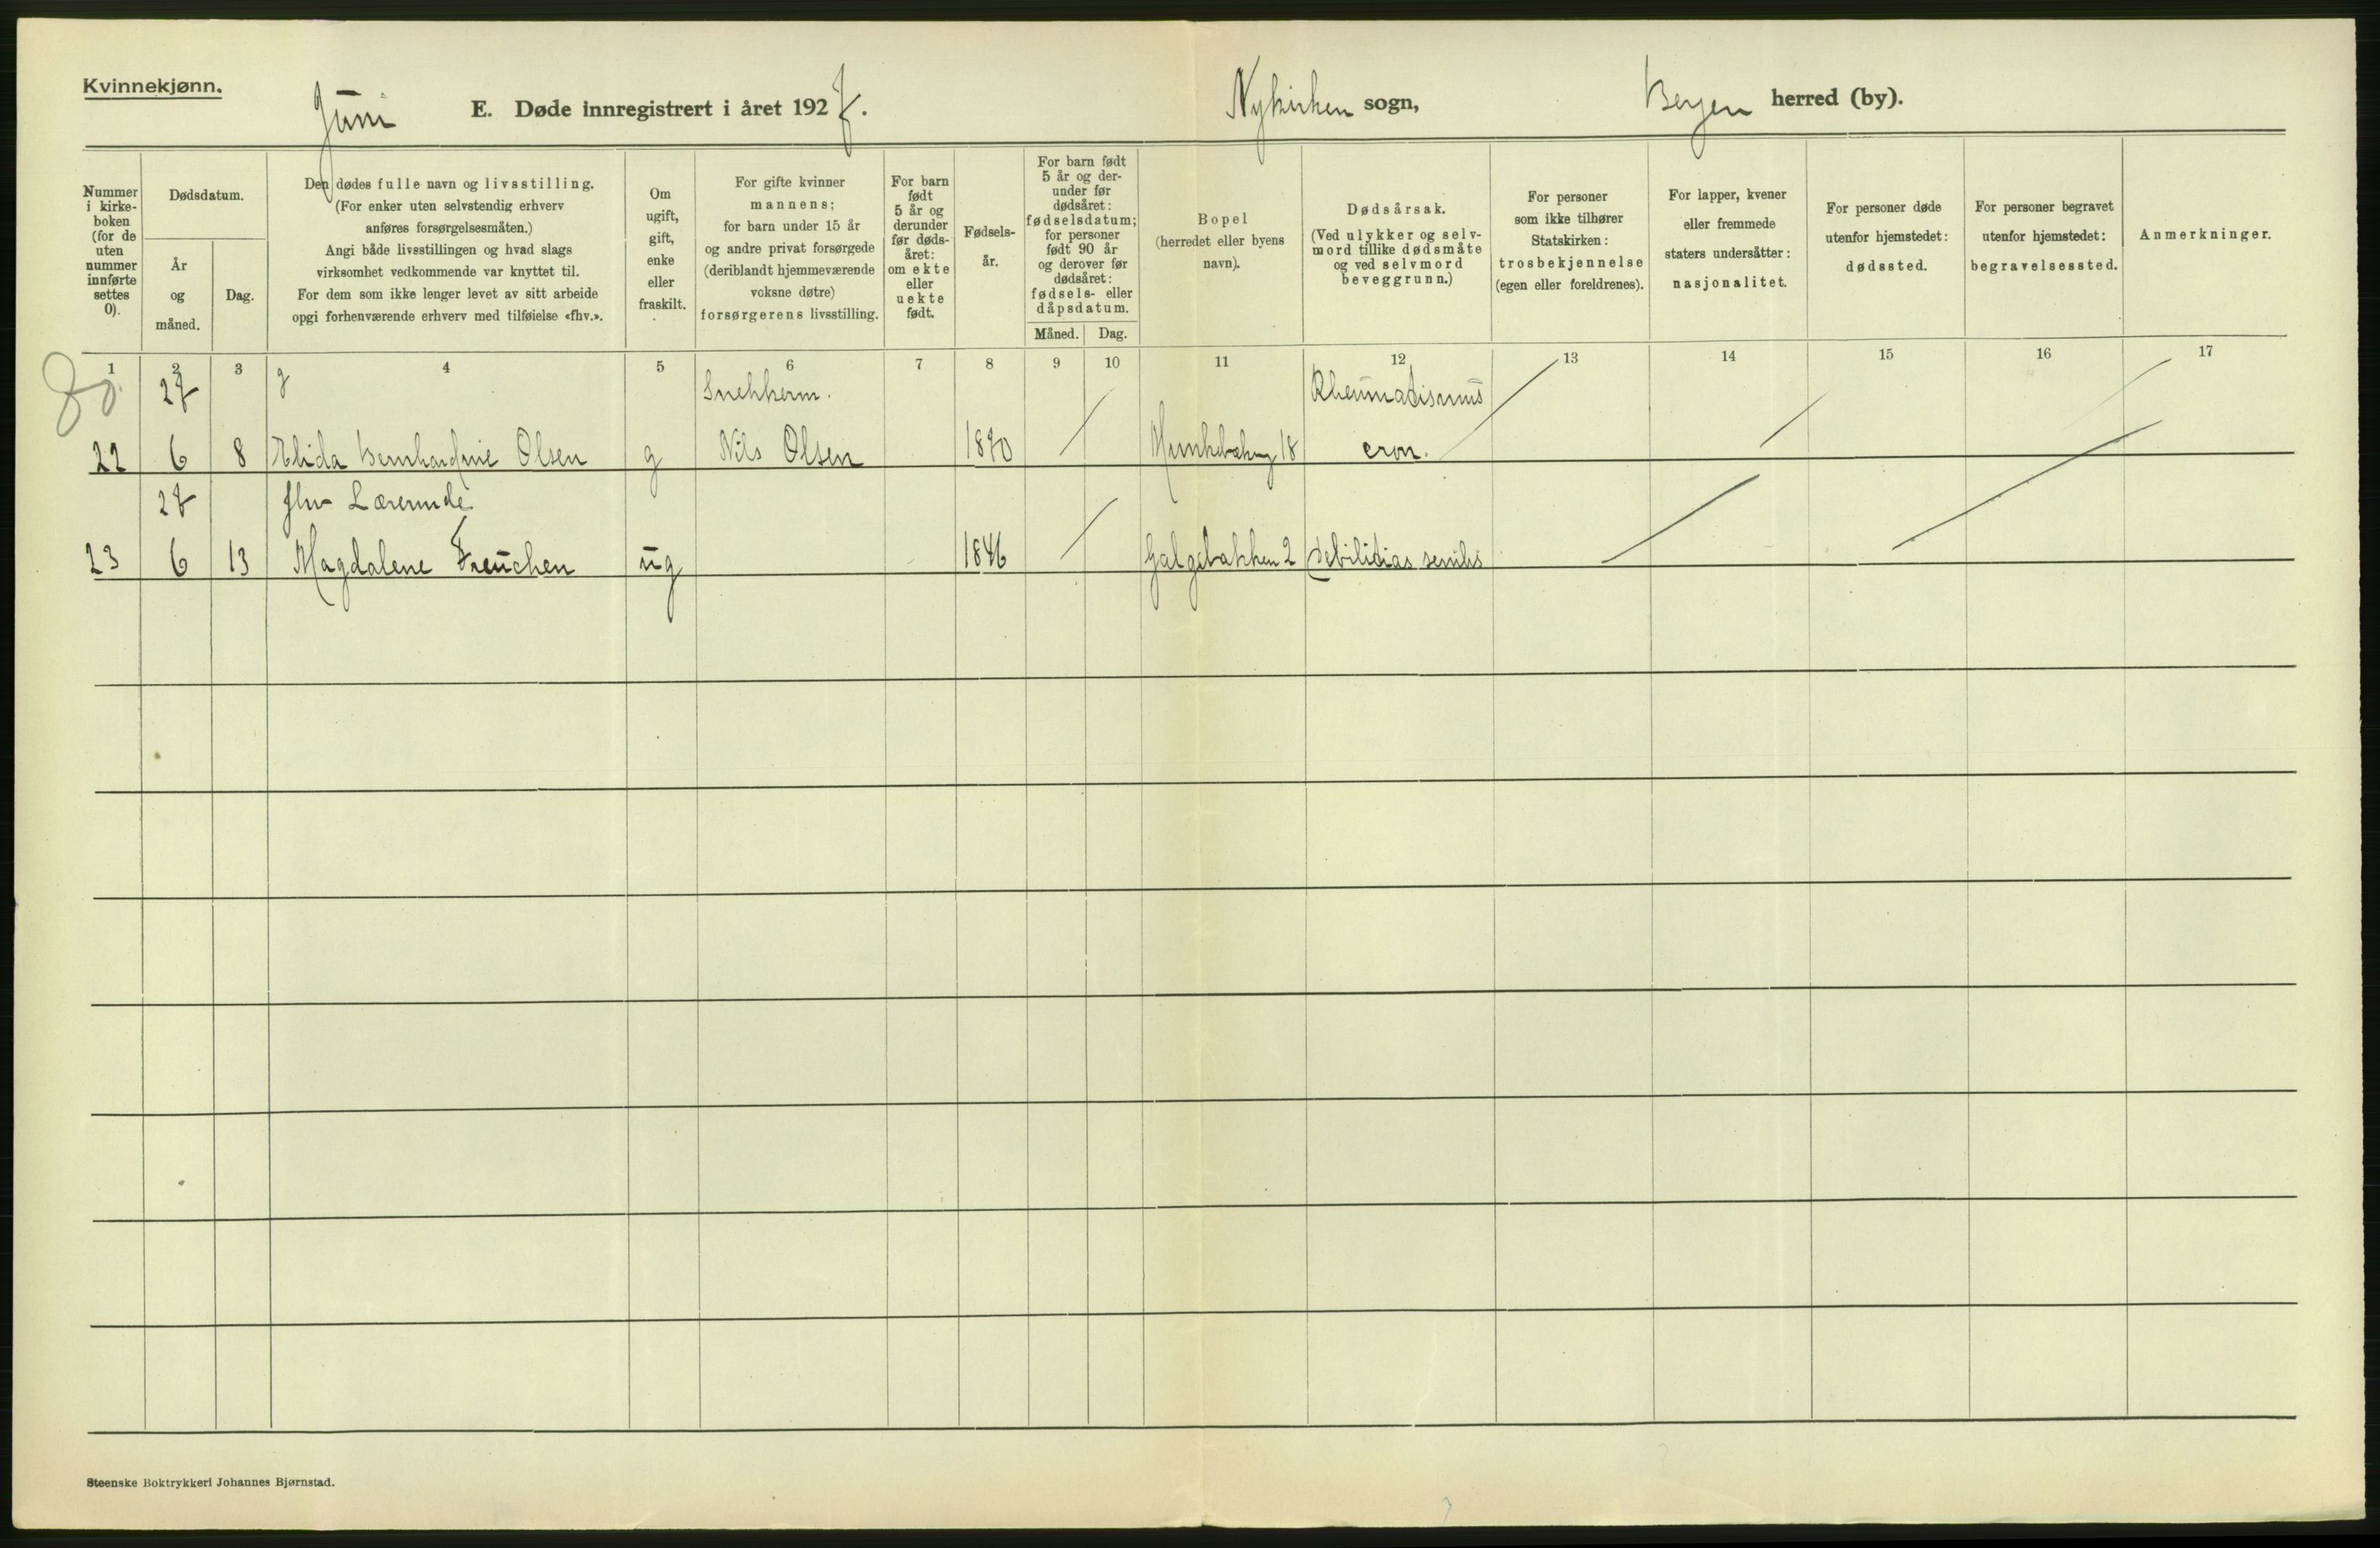 Kvinnekjønn.
Juni E. Døde innregistrert i året 1927. Nykirken sogn, Bergen herred (by).
Nummer i kirke-
boken
(for de
uten
nummer
innførte
settes
0).
Dødsdatum.
År
og
måned.
Dag.
Den dødes fulle navn og livsstilling.
(For enker uten selvstendig erhverv
anføres forsørgelsesmåten.)
Angi både livsstillingen og hvad slags
virksomhet vedkommende var knyttet til.
For dem som ikke lenger levet av sitt arbeide
opgi forhenværende erhverv med tilføielse «fhv.».
Om
ugift,
gift,
enke
eller
fraskilt.
For gifte kvinner
mannens;
for barn under 15 år
og andre privat forsørgede
(deriblandt hjemmeværende
voksne døtre)
forsørgerens livsstilling.
For barn
født
5 år og
derunder
før døds-
året:
om ekte
eller
uekte
født.
Fødsels-
år.
For barn født
5 år og der-
under før
dødsåret:
fødselsdatum;
for personer
født 90 år
og derover før
dødsåret:
fødsels- eller
dåpsdatum.
Måned. Dag.
Bopel
(herredet eller byens
navn).
Dødsårsak.
(Ved ulykker og selv-
mord tillike dødsmåte
og ved selvmord
beveggrunn.)
For personer
som ikke tilhører
Statskirken:
trosbekjennelse
(egen eller foreldrenes).
For lapper, kvener
eller fremmede
staters undersåtter:
nasjonalitet.
For personer døde
utenfor hjemstedet:
dødssted.
For personer begravet
utenfor hjemstedet:
begravelsessted.
Anmerkninger.
1 2 3 4 5 6 7 8 9 10 11 12 13 14 15 16 17
80. 27 g Snekkerm. Rheumatismus
22 6 8 Elida Bernhardine Olsen g Nils Olsen 1870 18 cron.
27 fhv Lærerinde
23 6 13 Magdalene Freuchen ug 1846 Galgebakken 2 Debilitas senilis
Steenske Boktrykkeri Johannes Bjørnstad.